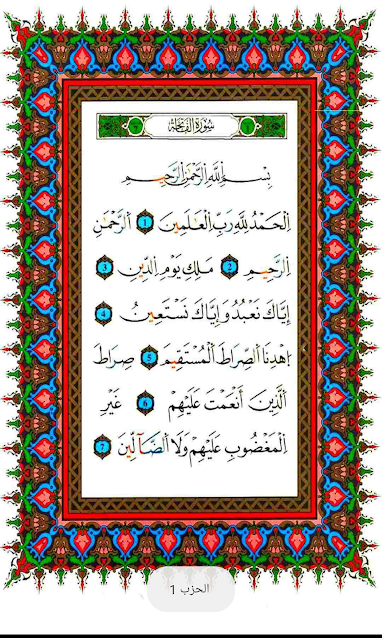 سُورَةُ الفَاتِحَةِ
بِسْمِ اِللَّهِ اِلرَّحْمَٰنِ اِلرَّحِيمِ
اِلْحَمْدُ لِلَّهِ رَبِّ اِلْعَٰلَمِينَ 1 اَلرَّحْمَٰنِ
اِلرَّحِيمِ 2 مَلِكِ يَوْمِ اِلدِّينِ 3
إِيَّاكَ نَعْبُدُ وَإِيَّاكَ نَسْتَعِينُ 4
اَهْدِنَا اَلصِّرَٰطَ اَلْمُسْتَقِيمَ 5 صِرَٰطَ
اَلَّذِينَ أَنْعَمْتَ عَلَيْهِمْ 6 غَيْرِ
اِلْمَغْضُوبِ عَلَيْهِمْ وَلَا اَلضَّآلِّينَ 7
الحزب 1